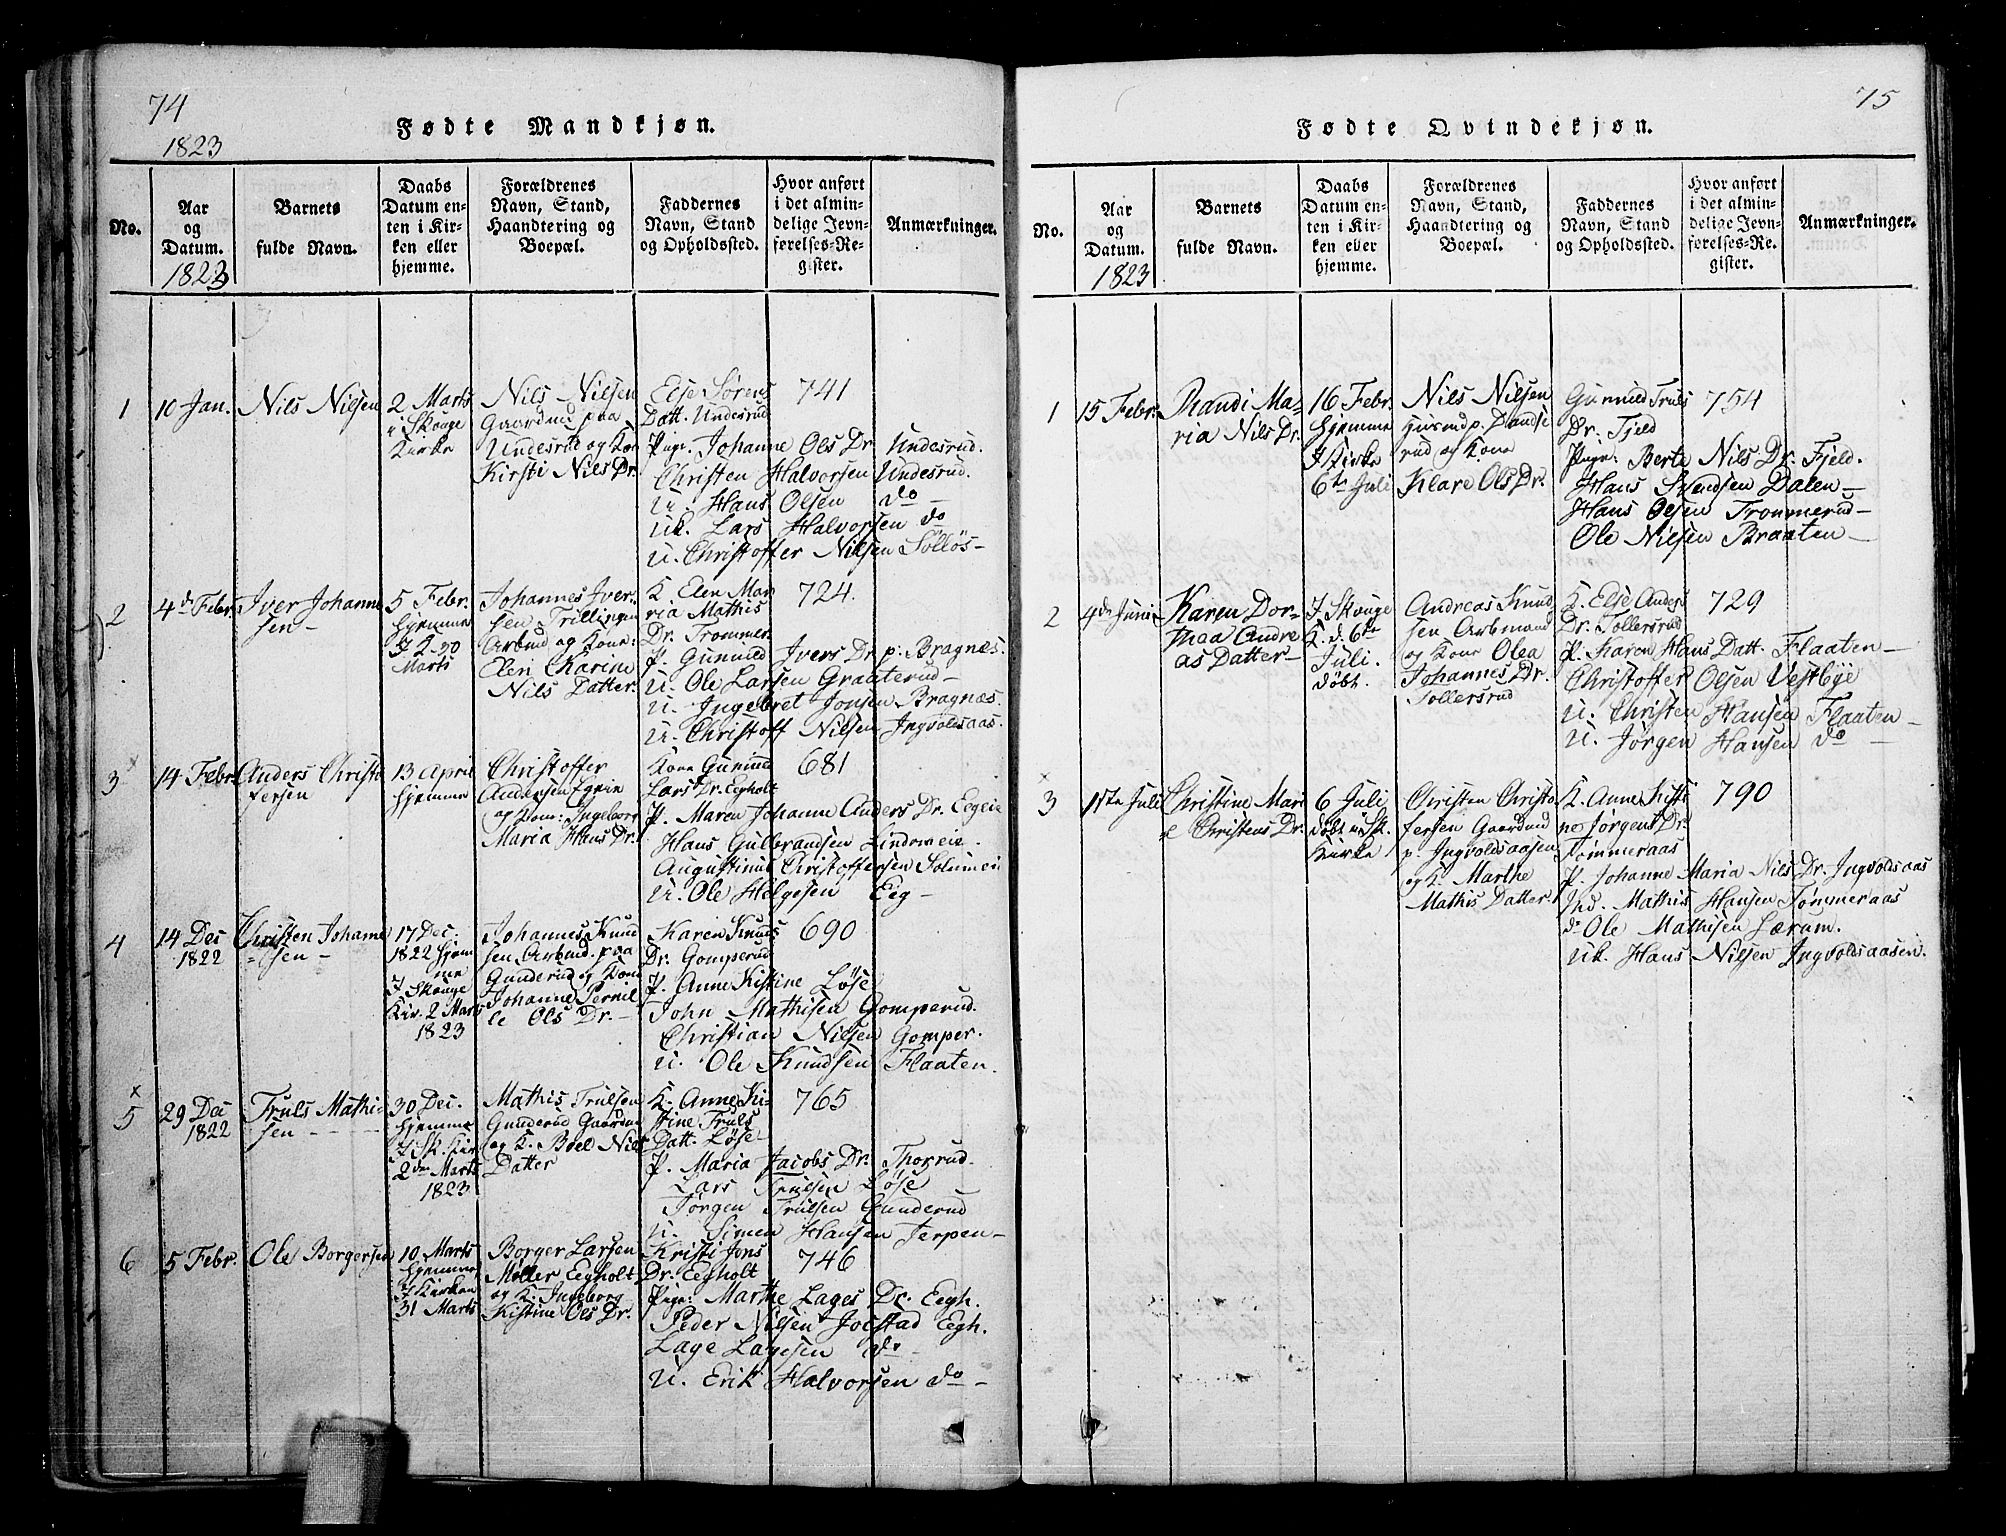 74
1823
Fødte Mandkjøn.
No.
Aar
og
Datum.
1823
Barnets
fulde Navn.
Daabs
Datum en-
ten i Kir-
ken eller
hjemme.
Forældrenes
Navn, Stand,
Haandtering og
Boepæl.
Faddernes
Navn, Stand
og Opholdssted.
Hvor anført
i det almin-
delige Jevn-
førelses-Re-
gister.
Anmærkninger.
1
10 Jan.
Nils Nilsen
2 Marts
i Skouge
Kirke
Nils Nilsen
Gaardmd paa
Undesrud og Kone
Kirsti Nils Dr.
Else Sørens
Datt. Undesrud
Pige. Johanne Ols Dr. Undesrud.
Christen Halvorsen Undesrud.
U. Hans Olsen do
Uk. Lars Halvorsen do
U. Christoffer Nilsen Solløs-
741
2
4de Febr.
Iver Johanne
sen-
5 Febr.
hjemme
I K 30
Marts
Johannes Iver-
sen Trillingen
Arbmd og Kone:
Elen Karine
Nils Datter.
K. Elen Ma
ria Mathis
Dr. Trommer.
P. Gunnild Ivers Dr. p: Bragnæs.
U. Ole Larsen Graaterud-
U. Ingebret Jonsen Bragnæs.
U. Christoff Nilsen Ingvoldsaas.
724.
3
14 Febr.
Anders Christo
fersen
13 April
hjemme
Christoffer
Andersen Egeie
og Kone: Ingeborg
Maria Hans Dr.
Kone Gunnild
Lars Dr. Eegholt
P. Maren Johanne Anders Dr. Eegeie
Hans Gulbrandsen Lindomeie.
Augustinus Christoffersen Solumeie
U. Ole Helgesen Eeg-
681
4
14 Dec
1822
Christen Johanne
sen-
17 Dec.
1822 hjem
me
I Skouge
Kir. 2 Marts
1823
Johannes Knud
sen Arbmd. paa
Gunderud og Kone
Johanne Pernil
le Ols Dr.-
Karen Knuds
Dr. Gomperud
P. Anne Kistine Løse
John Mathisen Gomperud.
Christian Nilsen Gomper.
U. Ole Knudsen Flaaten.
690
x
5
29 Dec
1822
Truls Mathi-
sen - - -
30 Dec.
hjemme
I Sk. Kir.
2den Marts
1823
Mathis Trulsen
Gunderud Gaardm
og K. Boel Nils
Datter
K. Anne Ki-
stine Truls
Datt. Løse-
P. Maria Jacobs Dr: Thorrud.
Lars Trulsen Løse
Jørgen Trulsen Gunderud
U. Simen Hansen Jerpen-
765
6
5 Febr.
Ole Borgersen
10 Marts
hjemme
I Kirken
31 Marts
Borger Larsen
Møller Eegholt
og K. Ingeborg
Kistine Ols Dr.
Kristi Jons
Dr. Eegholt
Pige: Marthe Lages Dr. Eegh.
Peder Nilsen Jolstad Eegh.
Lage Lagesen do
U. Erik Halvorsen do-
746
75
Fødte Qvindekjøn.
No.
Aar
og
Datum.
1823
Barnets
fulde Navn.
Daabs
Datum en-
ten i Kir-
ken eller
hjemme.
Forældrenes
Navn, Stand,
Haandtering og
Boepæl.
Faddernes
Navn, Stand
og Opholdssted.
Hvor anført
i det almin-
delige Jevn-
førelses-Re-
gister.
Anmærkninger.
1
15 Febr.
Randi Ma-
ria Nils Dr.
16 Febr.
hjemme
I Kirke
6te Juli
Nils Nilsen
Huusmd p. Dandse
rud og Kone
Klare Ols Dr.
Gunnild Truls
Dr. Fjeld
Pige: Berte Nils Dr. Fjeld.
Hans Svendsen Dalen-
Hans Olsen Trommerud-
Ole Nilsen Braaten-
754
2
9de Junii
Karen Dor-
thea Andre
as Datter-
I Skouge
K. d. 6te
Juli.
døbt.
Andreas Knud
sen Arbmand
og Kone Olea
Johannes Dr.
Tollersrud
K. Else Anders
Dr. Tollersrud
P. Karen Hans Datt. Flaaten-
Christoffer Olsen Vestbye
U. Christen Hansen Flaaten-
U. Jørgen Hansen do-
729
x
3
1ste Juli
Christine Mari
e Christens Dr.
6 Juli
døbt i Sk.
Kirke
Christen Christo
fersen Gaardmd
p. Ingvoldsaasen
og K. Marthe
Mathis Datter.
K. Anne Kisti
ne Jørgens Dr.
Tømmeraas
P. Johanne Maria Nils Dr. Ingvoldsaas
Ind. Mathis Hansen Tømmeraas
do Ole Mathisen Lærum.
Uk. Hans Nilsen Ingvoldsaasen.
790